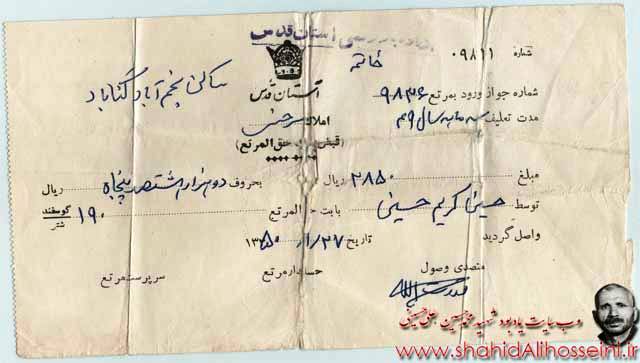 آستان قدس
شماره ۰۹۸۱۱
خاتمه
ساکن نجم آباد گناباد
آستان قدس
شماره جواز ورود بمرتع ۹۸۳۶
املاک سرخس
مدت تعلیف سه ماهه سال ۴۹
(قبض حق المرتع)
مبلغ ۲۸۵۰ ریال بحروف دو هزار هشتصد پنجاه ریال
توسط حسین کریم حسینی بابت حق المرتع ۱۹۰ گوسفند
شتر
واصل گردید تاریخ ۲۷/۱/۱۳۵۰
متصدی وصول حسابدار مرتع سرپرست مرتع
قدرت الله
وب سایت یادبود شهید محمدحسین علی حسینی
www.shahidAlihosseini.ir